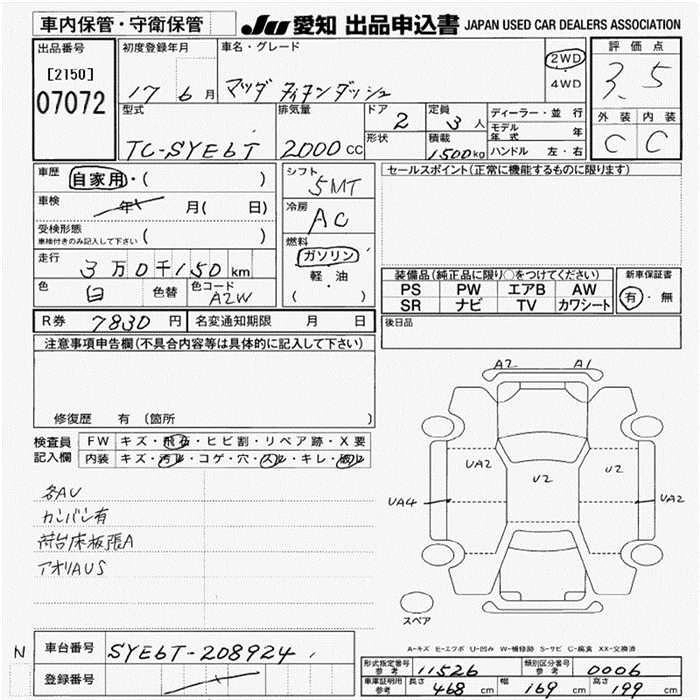 車内保管・守衛保管
JU 愛知 出品申込書 JAPAN USED CAR DEALERS ASSOCIATION
出品番号
[2150]
07072
初度登録年月
17 6月
車名・グレード
マツダ タイタンダッシュ
2WD
4WD
評価点
3.5
外装 内装
C C
型式
TC-SYE6T
排気量
2000cc
ドア
2
形状
定員
3人
積載
1500kg
ディーラー・並行
モデル年式 年
ハンドル 左・右
車歴
自家用・( )
車検
年 月( 日)
受検形態
車検付きのみ記入して下さい ( )
走行
3万0千150km
色 白 色替
色コード
A2W
シフト
5MT
冷房
AC
燃料
ガソリン
軽・油
( )
セールスポイント(正常に機能するものに限ります)
装備品(純正品に限り○をつけてください)
PS PW エアB AW
SR ナビ TV カワシート
新車保証書
有・無
R券 7830円 名変通知期限 月 日
後日品
注意事項申告欄(不具合内容等は具体的に記入して下さい)
修復歴 有(箇所 )
検査員記入欄
FW キズ・飛石・ヒビ割・リペア跡・X要
内装 キズ・汚レ・コゲ・穴・スレ・キレ・
各AU
カンバン有
荷台床板張A
アオリAUS
A2 A1
UA2 U2 U2
UA4 UA2
スペア
A-キズ E-エクボ U-凹み W-補修跡 S-サビ C-腐食 XX-交換済
N
車台番号 SYE6T-208924
登録番号
形式指定番号 参考 11526
類別区分番号 参考 0006
車庫証明用 参考 長さ 468cm 幅 169cm 高さ 199cm